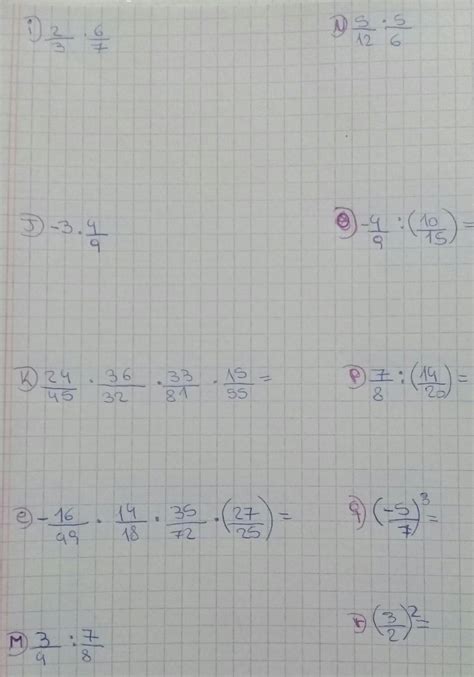 i) 2/3 · 6/7
N) 5/12 : 5/6
J) -3 · 4/9
O) -4/9 : (10/15) =
K) 24/45 · 36/32 · 33/81 · 15/55 =
P) 7/8 : (14/20) =
e) -16/49 · 14/18 · 35/72 · (27/25) =
q) (-5/7)³ =
M) 3/4 : 7/8
r) (3/2)² =